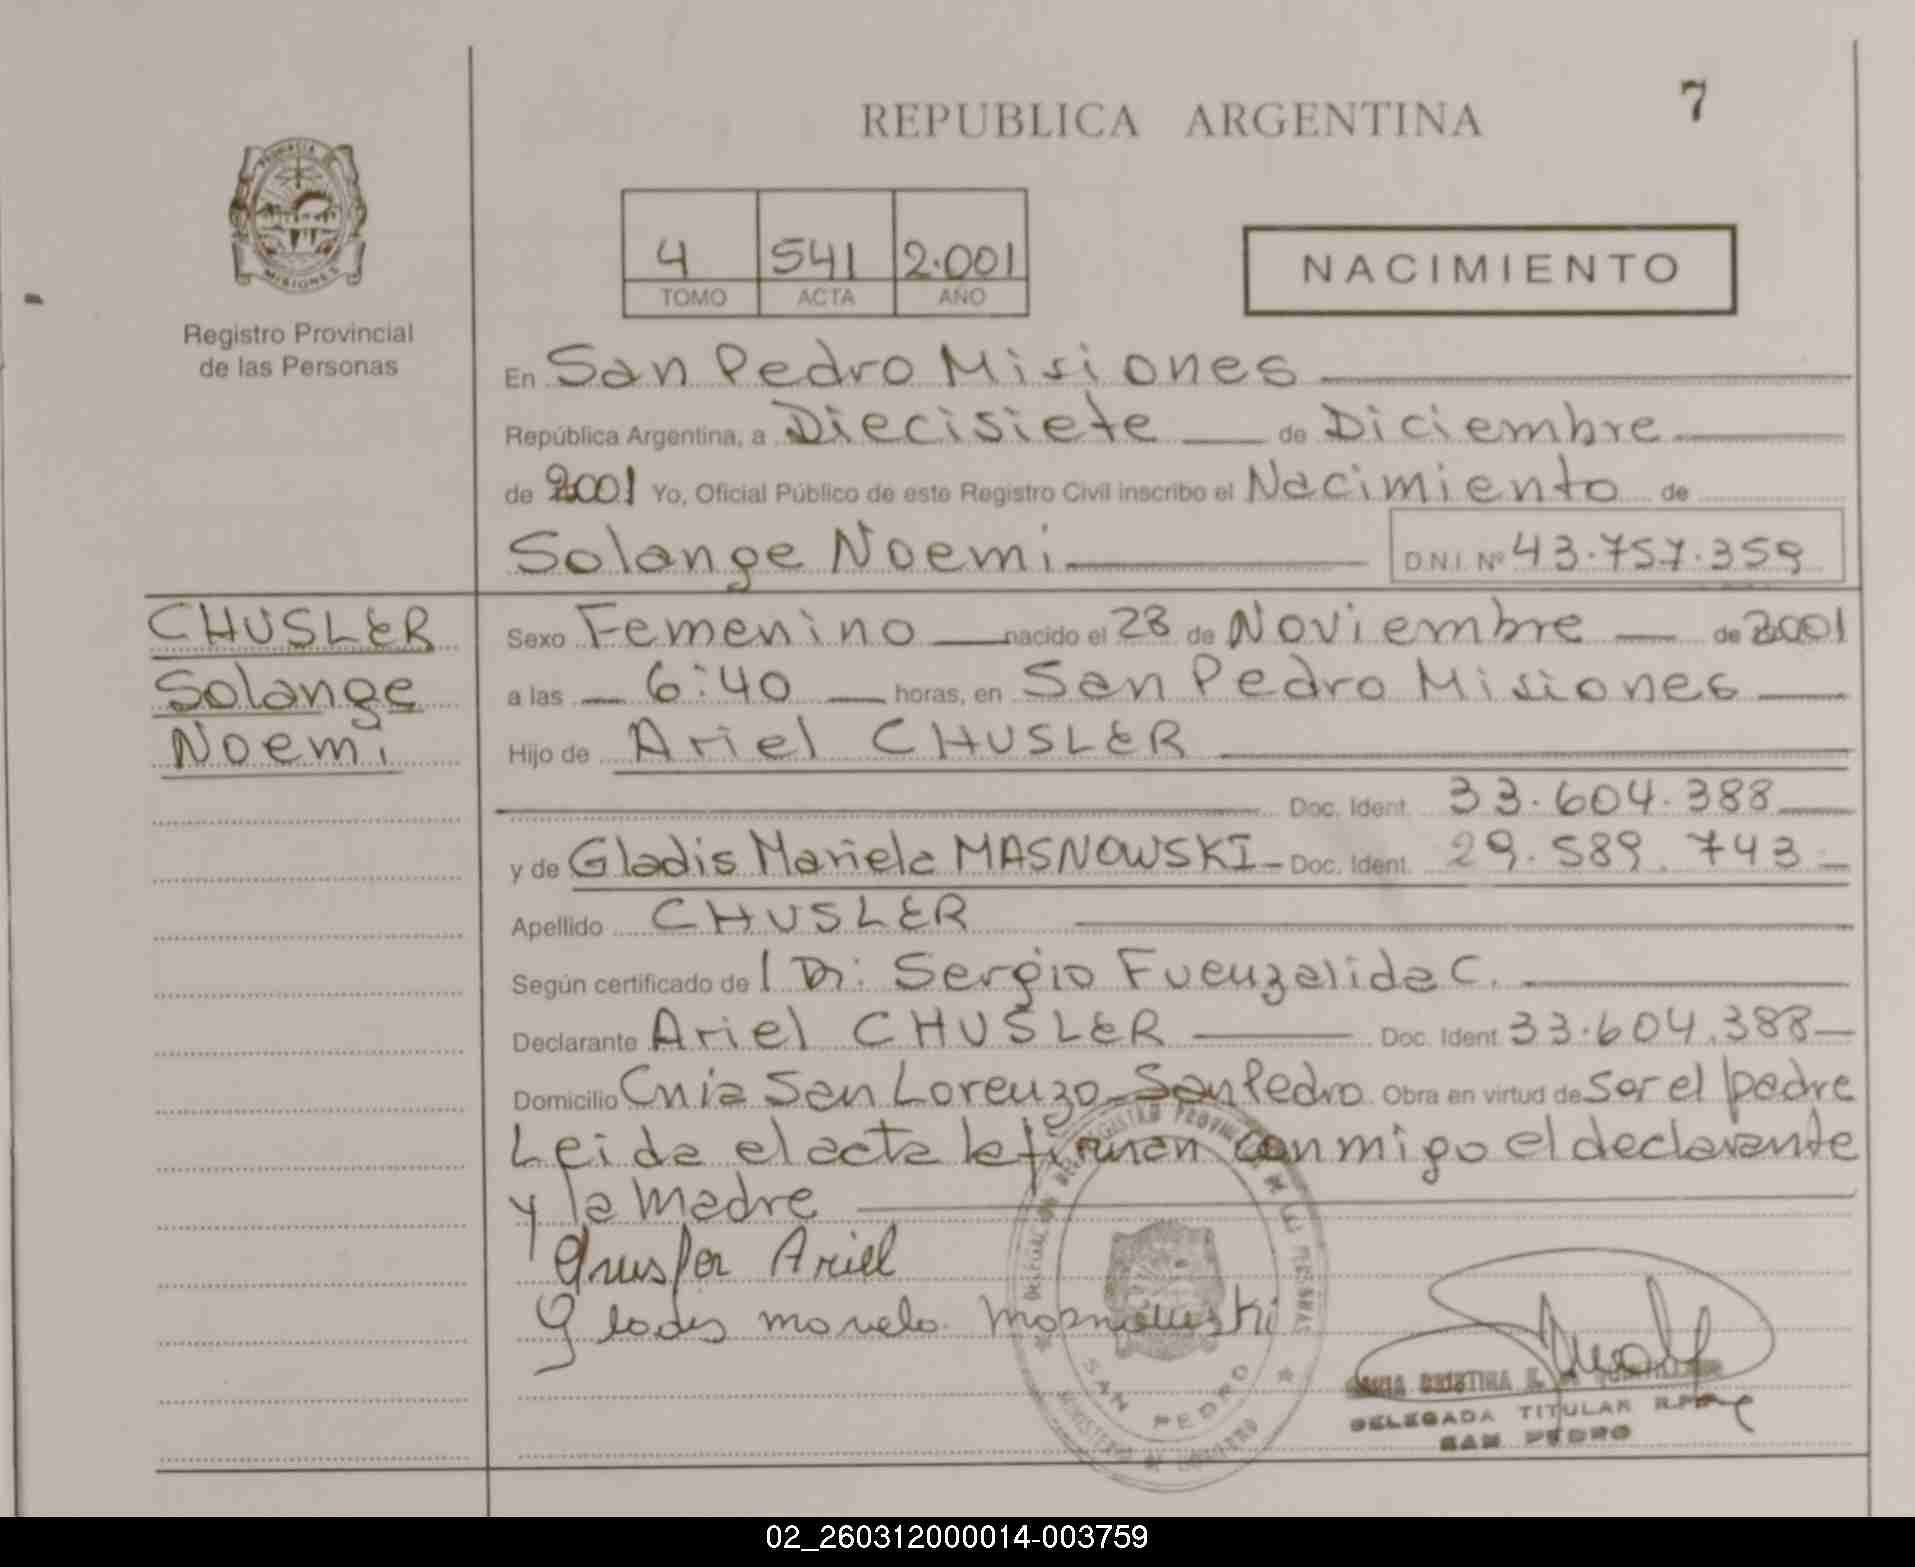 7
REPUBLICA ARGENTINA
PROVINCIA DE
MISIONES
Registro Provincial
de las Personas
4 541 2.001
TOMO ACTA AÑO
NACIMIENTO
En San Pedro Misiones
República Argentina, a Diecisiete de Diciembre
de 2001 Yo, Oficial Público de este Registro Civil inscribo el Nacimiento de
Solange Noemi D.N.I. Nº 43.757.359
CHUSLER
Solange
Noemi
Sexo Femenino nacido el 28 de Noviembre de 2001
a las 6:40 horas, en San Pedro Misiones
Hijo de Ariel CHUSLER
Doc. Ident. 33.604.388
y de Gladis Mariela MASNOWSKI Doc. Ident. 29.589.743
Apellido CHUSLER
Según certificado de l Dr: Sergio Fuenzalida C.
Declarante Ariel CHUSLER Doc. Ident. 33.604.388
Domicilio Cnia San Lorenzo San Pedro Obra en virtud de ser el padre
Leida el acta la firman conmigo el declarante
y la madre
Ariel
DELEGADA TITULAR
SAN PEDRO
SAN PEDRO
MINISTERIO DE GOBIERNO
02_260312000014-003759